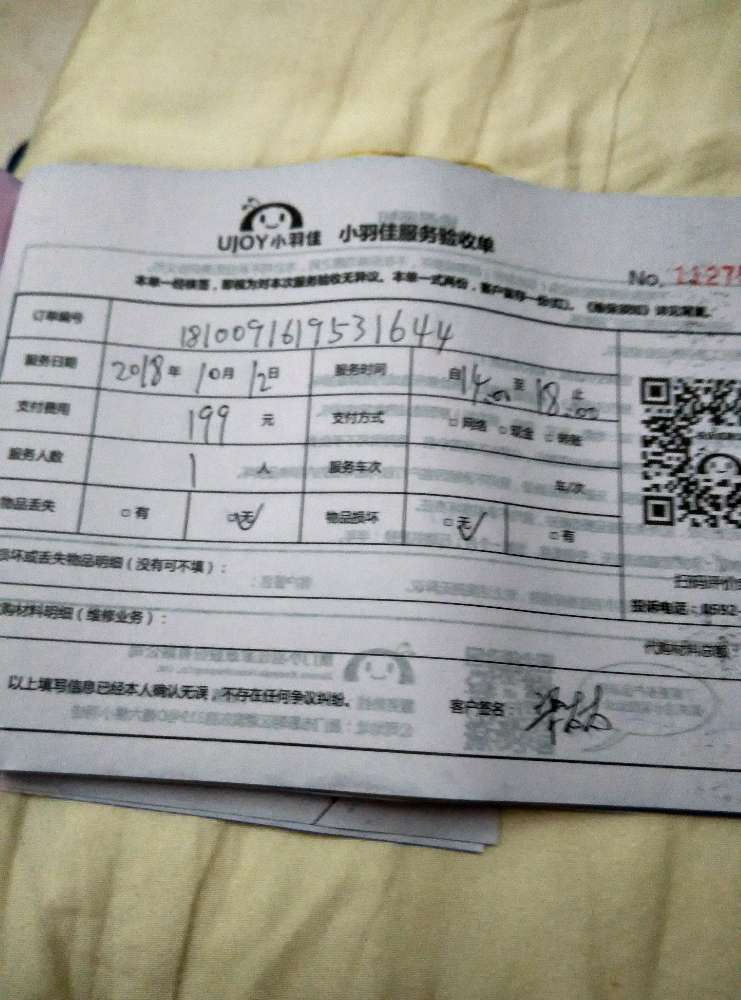 UJOY小羽佳 小羽佳服务验收单
No. 11275
本单一经核签，即视为对本次服务验收无异议。本单一式两份，客户留存一份(红)。《售保须知》详见背面。
订单编号 1810091619531644
服务日期 2018年10月12日 服务时间 自14.00至18.00止
支付费用 199 元 支付方式 □网络 □现金 □转账
服务人数 1 人 服务车次 车/次
物品丢失 □有 □无✓ 物品损坏 □无✓ □有
损坏或丢失物品明细（没有可不填）：
扫码评价
投诉电话：0592-
购材料明细（维修业务）：
代购材料总额
以上填写信息已经本人确认无误，不存在任何争议纠纷。 客户签名：